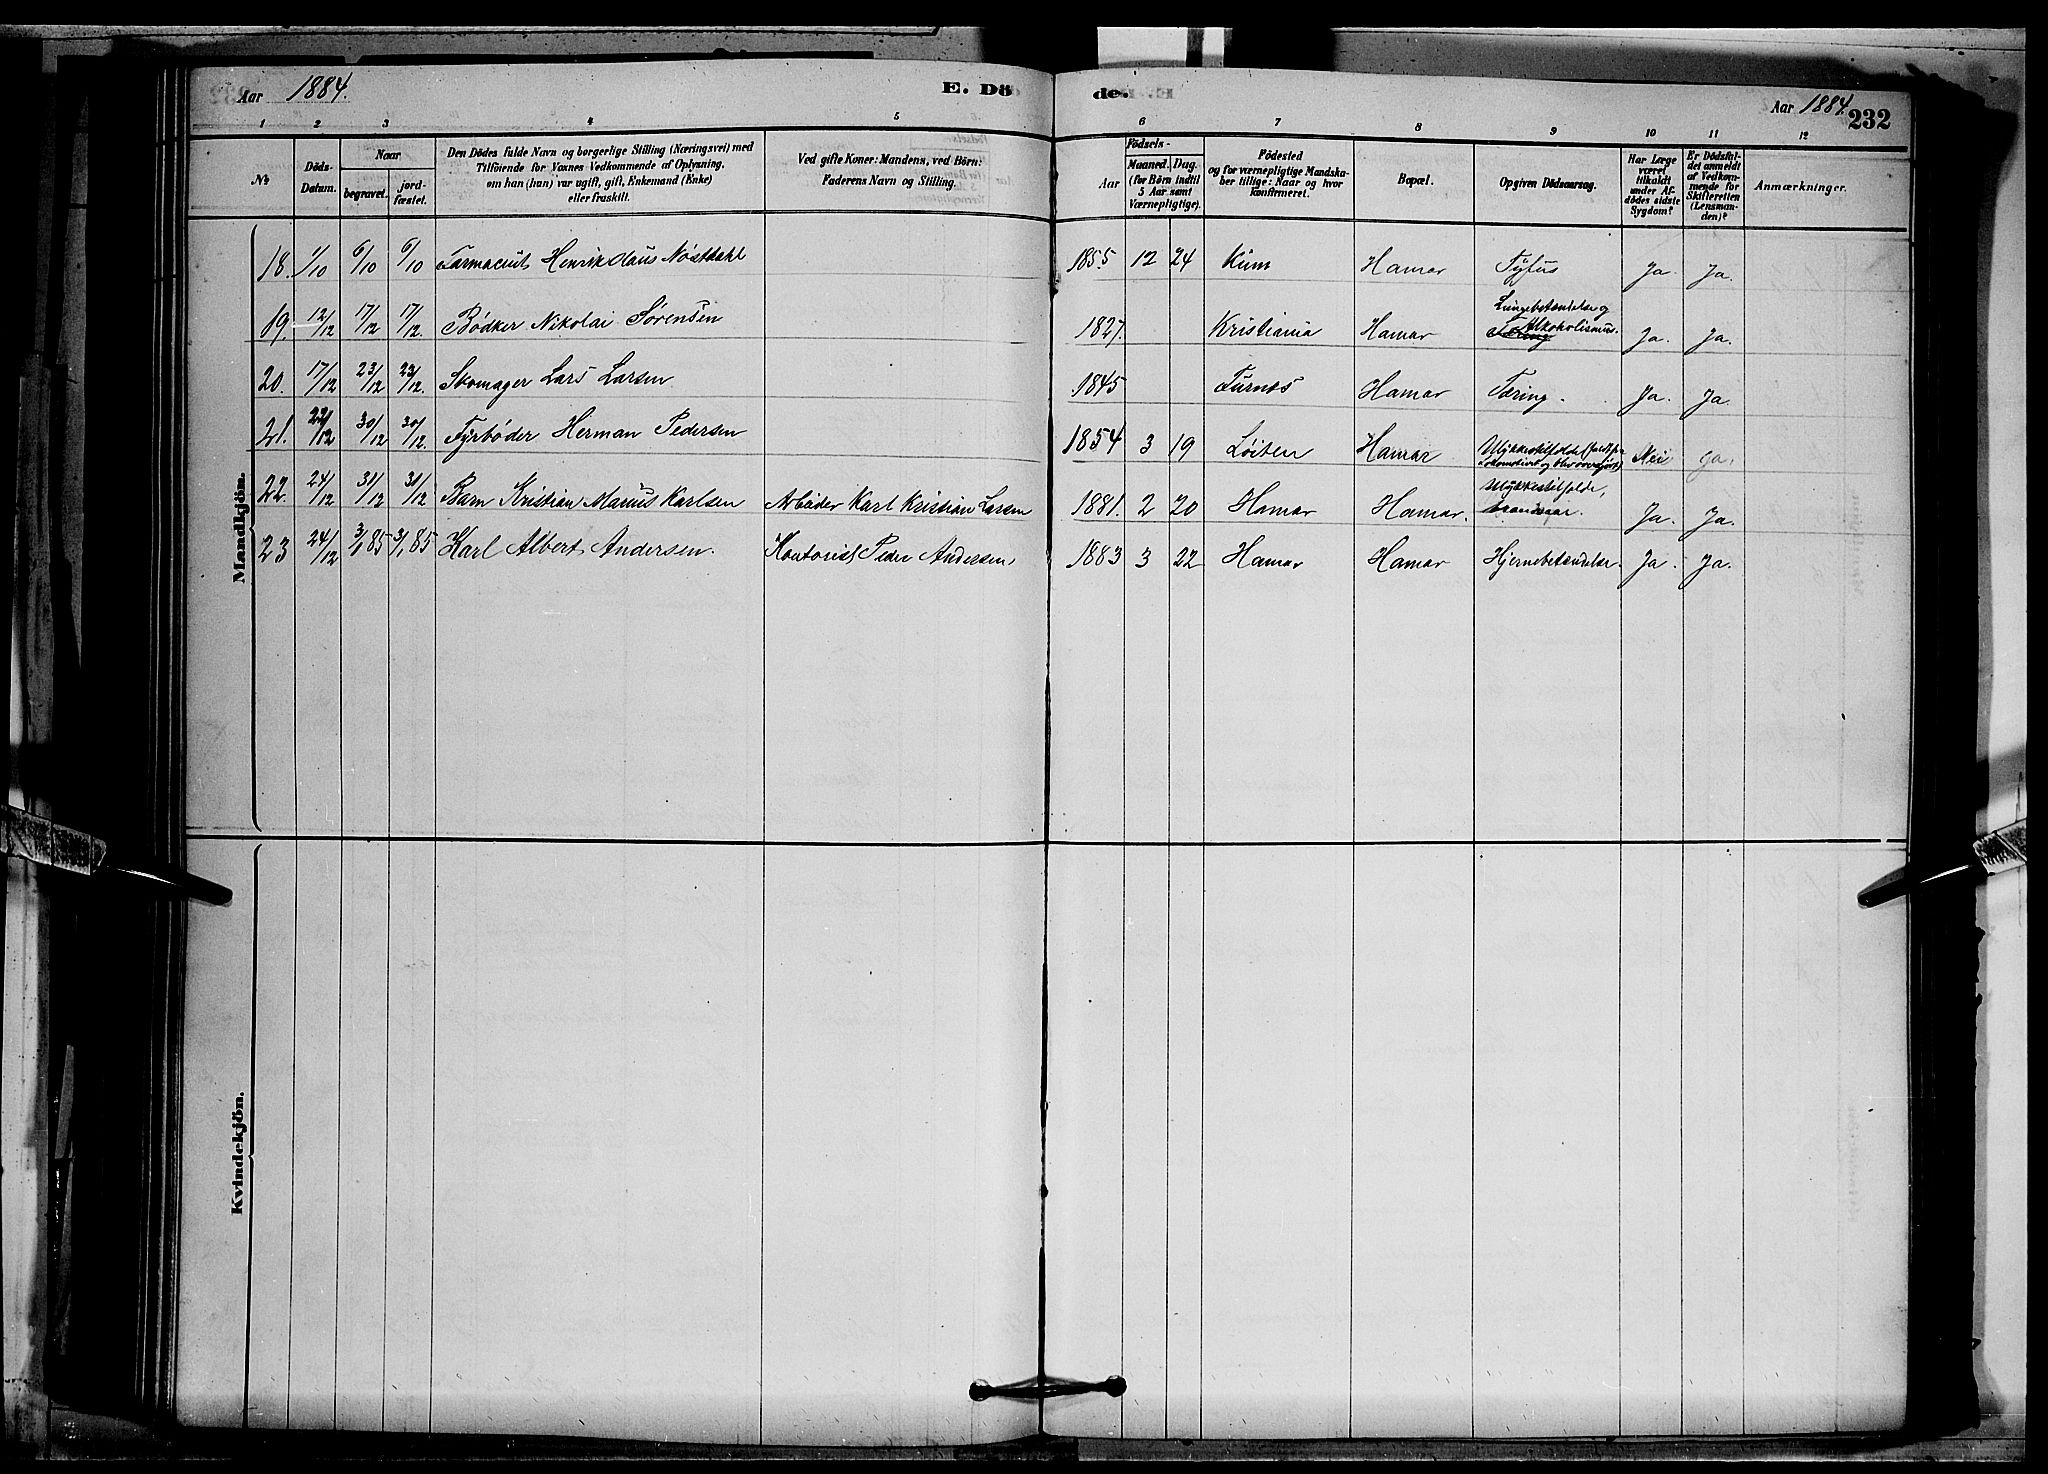 Aar 1884.
E. Döde.
Aar 1884.
232
1 2 3 4 5 6 7 8 9 10 11 12
№
Döds-Datum.
Naar
begravet.
jord-fæstet.
Den Dödes fulde Navn og borgerlige Stilling (Næringsvei) med
Tilföiende for Voxnes Vedkommende af Oplysning,
om han (hun) var ugift, gift, Enkemand (Enke)
eller fraskilt.
Ved gifte Koner: Mandens, ved Börn:
Faderens Navn og Stilling.
Födsels-
Aar
Maaned. Dag.
(for Börn indtil
5 Aar samt
Værnepligtige).
Födested
og for værnepligtige Mandska-
ber tillige: Naar og hvor
konfirmeret.
Bopæl.
Opgiven Dödsaarsag.
Har Læge
været
tilkaldt
under Af-
dödes sidste
Sygdom?
Er Dödsfal-
det anmeldt
af Vedkom-
mende for
Skifteretten
(Lensman-
den)?
Anmærkninger.
Mandkjön.
18. 1/10 6/10 6/10 Farmaceut Henrik Claus Nøstdahl 1855 12 24 Hamar Tyfus Ja. Ja.
19. 12/12 17/12 17/12. Bødker Nikolai Sørensen 1827. Kristiania Hamar Lungebetændelse og Alkoholismus. Tæring Ja. Ja.
20. 17/12 23/12 23/12. Skomager Lars Larsen 1845 Furnes Hamar Tæring. Ja. Ja.
21. 22/12 30/12 30/12. Fyrbøder Herman Pedersen 1854 3 19 Løiten Hamar Ulykkestilfælde (faldt fra Lokomotivet og blev overkjørt) Nei Ja.
22. 24/12 31/12 31/12 Barn Kristian Marius Karlsen Arbeider Karl Kristian Larsen 1881. 2 20 Hamar Hamar. Ulykkestilfælde, Ja. Ja.
23 24/12 3/1 85 3/1 85 Karl Albert Andersen. Kontorist Peder Andersen, 1883 3 22 Hamar Hamar Hjernebetændelse. Ja. Ja.
Kvindekjön.